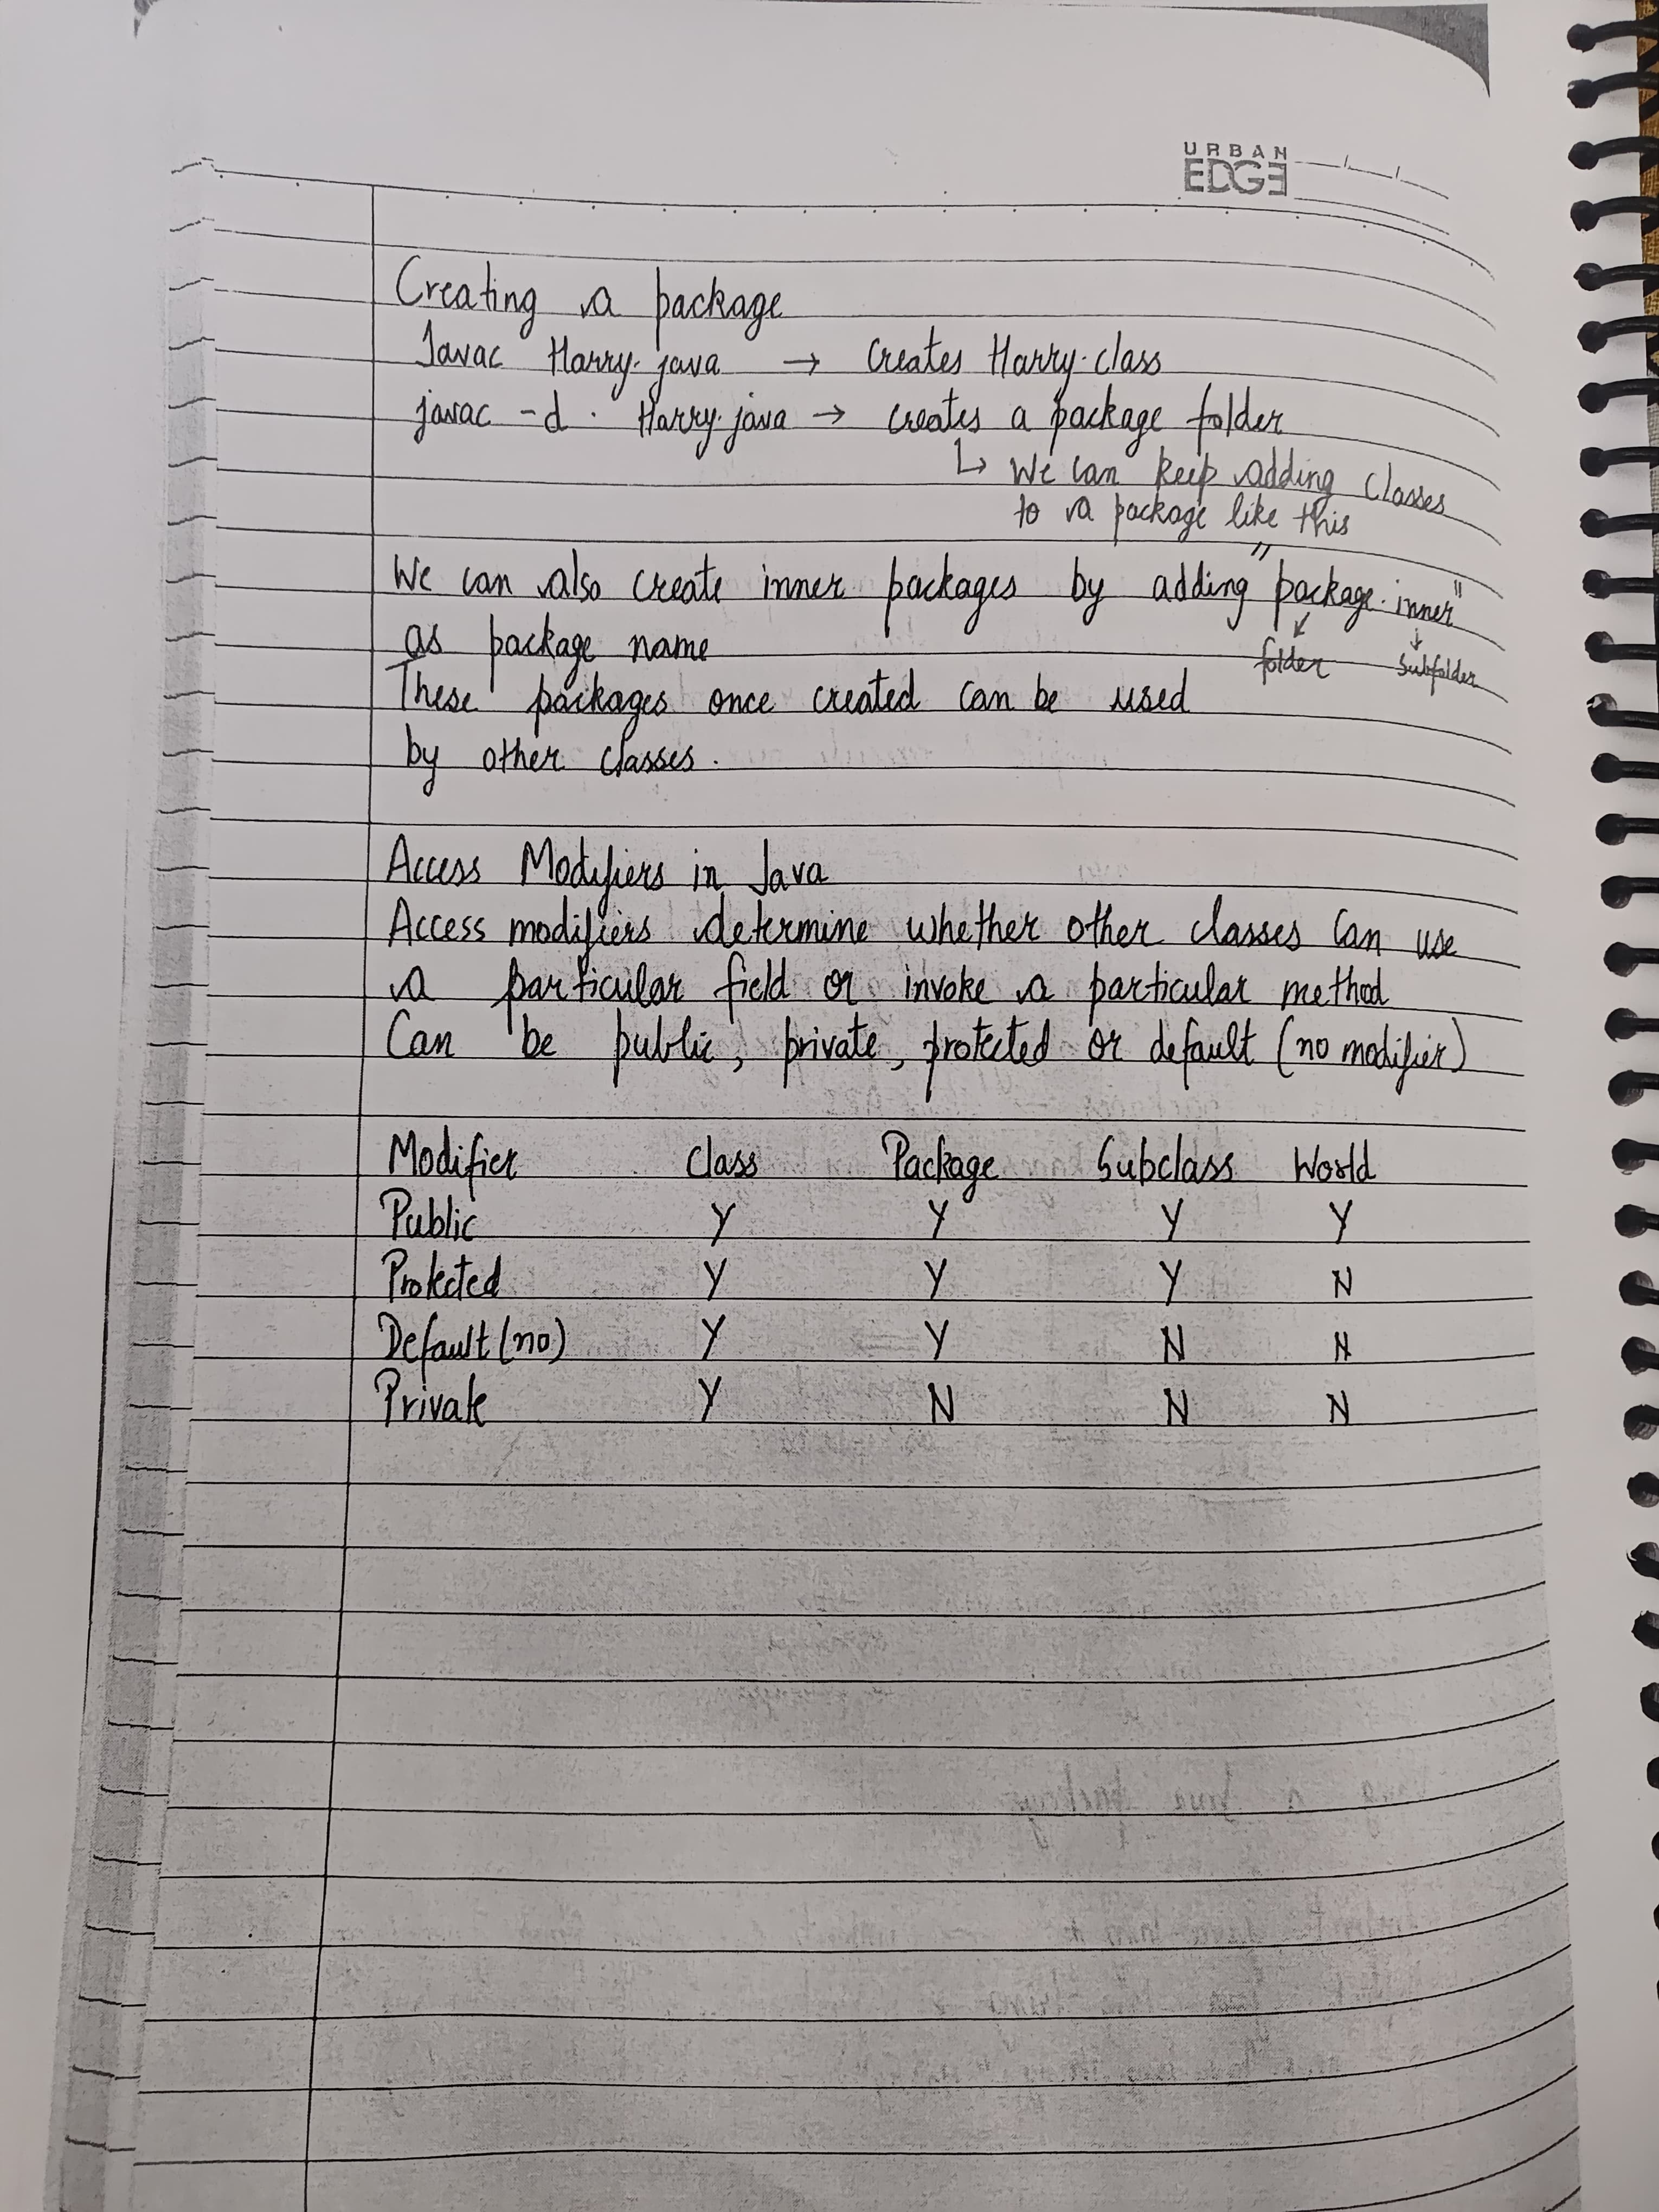 URBAN
EDGE
Creating a package
Javac Harry.java → Creates Harry.class
javac -d . Harry.java → creates a package folder
↳ We can keep adding classes
to a package like this
We can also create inner packages by adding "package.inner"
as package name
folder subfolder
These packages once created can be used
by other classes.
Access Modifiers in Java
Access modifiers determine whether other classes can use
a particular field or invoke a particular method
Can be public, private, protected or default (no modifier)
Modifier Class Package Subclass World
Public Y Y Y Y
Protected Y Y Y N
Default (no) Y Y N N
Private Y N N N